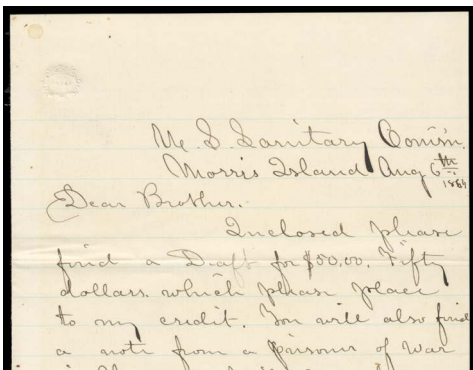 U. S. Sanitary Comm'n.
Morris Island Aug 6th
1864
Dear Brother.
Inclosed please
find a Draft for $50.00. Fifty
dollars. which please place
to my credit. You will also find
a note from a prisoner of war